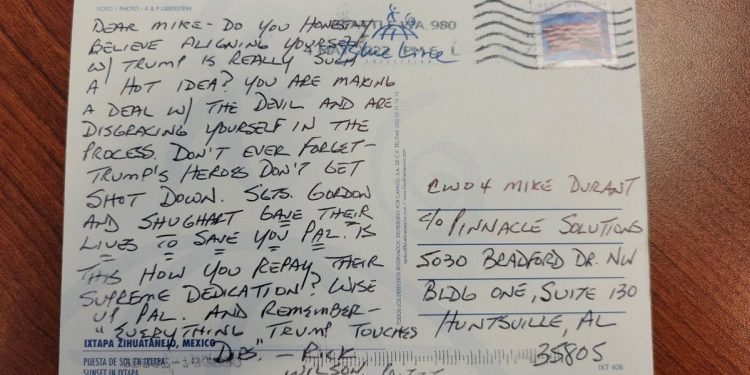 FOTO / PHOTO : A & P OBERSTEIN
DEAR MIKE - DO YOU HONESTLY
BELIEVE ALIGNING YOURSELF
W/ TRUMP IS REALLY SUCH
A HOT IDEA? YOU ARE MAKING
A DEAL W/ THE DEVIL AND ARE
DISGRACING YOURSELF IN THE
PROCESS. DON'T EVER FORGET-
TRUMP'S HEROES DON'T GET
SHOT DOWN. SGTS. GORDON
AND SHUGHART GAVE THEIR
LIVES TO SAVE YOU PAL. IS
THIS HOW YOU REPAY THEIR
SUPREME DEDICATION? WISE
UP PAL. AND REMEMBER-
"EVERYTHING TRUMP TOUCHES
DIES." - RICK
WILSON
IXTAPA ZIHUATANEJO, MEXICO
PUESTA DE SOL EN IXTAPA
SUNSET IN IXTAPA
WA 980
2022
CWO4 MIKE DURANT
C/O PINNACLE SOLUTIONS
5030 BRADFORD DR. NW
BLDG ONE, SUITE 130
HUNTSVILLE, AL
35805
IXT 408